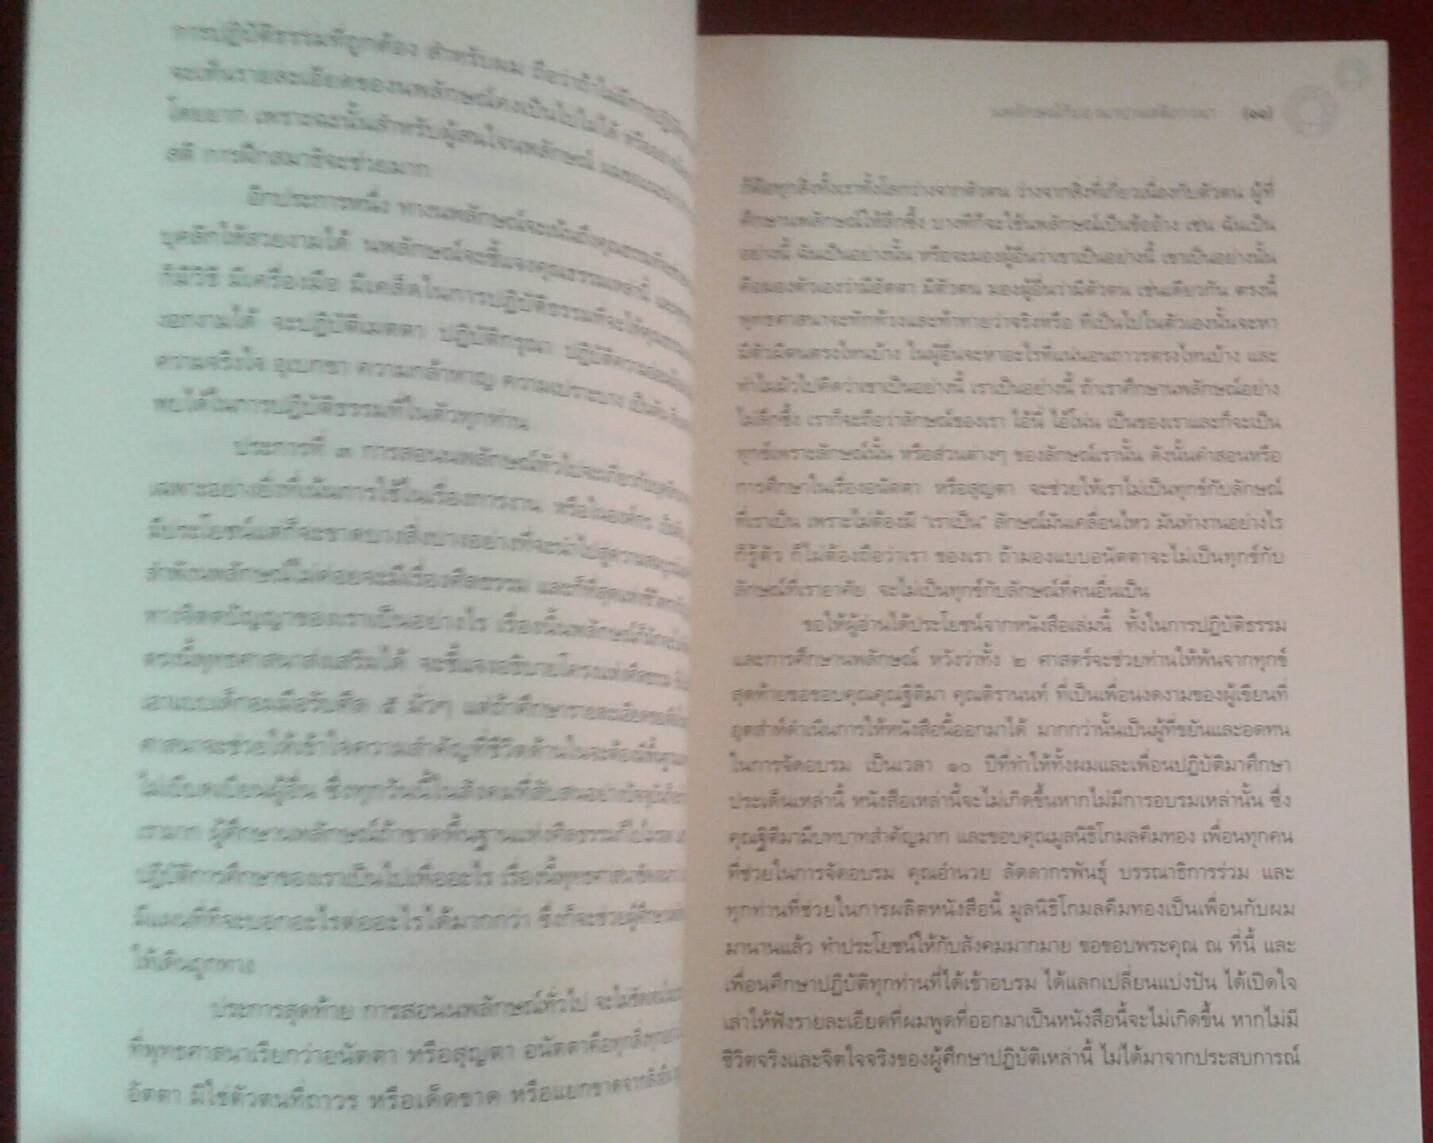 การปฏิบัติธรรมที่ถูกต้อง สำหรับผม ถือว่าถ้าไม่มีการปฏิบัติ
จะเห็นรายละเอียดของนพลักษณ์คงเป็นไปไม่ได้ หรือ
โดยยาก เพราะฉะนั้นสำหรับผู้สนใจนพลักษณ์
สติ การฝึกสมาธิจะช่วยมาก
อีกประการหนึ่ง ทางนพลักษณ์จะเน้นถึงคุณธรรม
บุคลิกให้สวยงามได้ นพลักษณ์จะชี้แจงคุณธรรมเหล่านี้
ก็มีวิธี มีเครื่องมือ มีเคล็ดในการปฏิบัติธรรมที่จะให้คุณธรรม
งอกงามได้ จะปฏิบัติเมตตา ปฏิบัติกรุณา ปฏิบัติความอ่อนน้อม
ความจริงใจ อุเบกขา ความกล้าหาญ ความเปราะบาง เป็นต้น
พบได้ในการปฏิบัติธรรมที่ในตัวทุกท่าน
ประการที่ ๓ การสอนนพลักษณ์ทั่วไปจะเกี่ยวกับ
เฉพาะอย่างยิ่งที่เน้นการใช้ในเรื่องการงาน หรือในองค์กร
มีประโยชน์แต่ก็จะขาดบางสิ่งบางอย่างที่จะนำไปสู่ความสมบูรณ์
ลำพังนพลักษณ์ไม่ค่อยจะมีเรื่องศีลธรรม และก็ที่สุดแห่งชีวิต
ทางจิตตปัญญาของเราเป็นอย่างไร เรื่องนี้นพลักษณ์ก็
ตรงนี้พุทธศาสนาส่งเสริมได้ จะชี้แจงอธิบายโครงแห่งศีลธรรม
เอาแบบเด็กอมมือรับศีล ๕ มั่วๆ แต่ถ้าศึกษารายละเอียด
ศาสนาจะช่วยให้เข้าใจความสำคัญที่ชีวิตด้านในจะต้องมีพื้นฐาน
ไม่เบียดเบียนผู้อื่น ซึ่งทุกวันนี้ในสังคมที่สับสนอย่างปัจจุบัน
เรามาก ผู้ศึกษานพลักษณ์ถ้าขาดพื้นฐานแห่งศีลธรรมก็
ปฏิบัติการศึกษาของเราเป็นไปเพื่ออะไร เรื่องนี้พุทธศาสน
มีแผนที่ที่จะบอกอะไรต่ออะไรได้มากกว่า ซึ่งก็จะช่วยผู้ศึกษา
ให้เดินถูกทาง
ประการสุดท้าย การสอนนพลักษณ์ทั่วไป จะไม่ชัดเจน
ที่พุทธศาสนาเรียกว่าอนัตตา หรือสุญตา อนัตตาคือทุกสิ่งทุกอย่าง
อัตตา มิใช่ตัวตนที่ถาวร หรือเด็ดขาด หรือแยกขาดจากสิ่งอื่น
นพลักษณ์กับอานาปานสติภาวนา (๑๑)
ก็คือทุกสิ่งทั้งเราทั้งโลกว่างจากตัวตน ว่างจากสิ่งที่เกี่ยวเนื่องกับตัวตน ผู้ที่
ศึกษานพลักษณ์ให้ลึกซึ้ง บางทีก็จะใช้นพลักษณ์เป็นข้ออ้าง เช่น ฉันเป็น
อย่างนี้ ฉันเป็นอย่างนั้น หรือจะมองผู้อื่นว่าเขาเป็นอย่างนี้ เขาเป็นอย่างนั้น
คือมองตัวเองว่ามีอัตตา มีตัวตน มองผู้อื่นว่ามีตัวตน เช่นเดียวกัน ตรงนี้
พุทธศาสนาจะทักท้วงและท้าทายว่าจริงหรือ ที่เป็นไปในตัวเองนั้นจะหา
มีตัวมีตนตรงไหนบ้าง ในผู้อื่นจะหาอะไรที่แน่นอนถาวรตรงไหนบ้าง และ
ทำไมมัวไปคิดว่าเขาเป็นอย่างนี้ เราเป็นอย่างนี้ ถ้าเราศึกษานพลักษณ์อย่าง
ไม่ลึกซึ้ง เราก็จะถือว่าลักษณ์ของเรา ไอ้นี่ ไอ้โน่น เป็นของเราและก็จะเป็น
ทุกข์เพราะลักษณ์นั้น หรือส่วนต่างๆ ของลักษณ์เรานั้น ดังนั้นคำสอนหรือ
การศึกษาในเรื่องอนัตตา หรือสุญตา จะช่วยให้เราไม่เป็นทุกข์กับลักษณ์
ที่เราเป็น เพราะไม่ต้องมี "เราเป็น" ลักษณ์มันเคลื่อนไหว มันทำงานอย่างไร
ก็รู้ตัว ก็ไม่ต้องถือว่าเรา ของเรา ถ้ามองแบบอนัตตาจะไม่เป็นทุกข์กับ
ลักษณ์ที่เราอาศัย จะไม่เป็นทุกข์กับลักษณ์ที่คนอื่นเป็น
ขอให้ผู้อ่านได้ประโยชน์จากหนังสือเล่มนี้ ทั้งในการปฏิบัติธรรม
และการศึกษานพลักษณ์ หวังว่าทั้ง ๒ ศาสตร์จะช่วยท่านให้พ้นจากทุกข์
สุดท้ายขอขอบคุณคุณฐิติมา คุณติรานนท์ ที่เป็นเพื่อนงดงามของผู้เขียนที่
อุตส่าห์ดำเนินการให้หนังสือนี้ออกมาได้ มากกว่านั้นเป็นผู้ที่ขยันและอดทน
ในการจัดอบรม เป็นเวลา ๑๐ ปีที่ทำให้ทั้งผมและเพื่อนปฏิบัติมาศึกษา
ประเด็นเหล่านี้ หนังสือเหล่านี้จะไม่เกิดขึ้นหากไม่มีการอบรมเหล่านั้น ซึ่ง
คุณฐิติมามีบทบาทสำคัญมาก และขอบคุณมูลนิธิโกมลคีมทอง เพื่อนทุกคน
ที่ช่วยในการจัดอบรม คุณอำนวย ลัดดากรพันธุ์ บรรณาธิการร่วม และ
ทุกท่านที่ช่วยในการผลิตหนังสือนี้ มูลนิธิโกมลคีมทองเป็นเพื่อนกับผม
มานานแล้ว ทำประโยชน์ให้กับสังคมมากมาย ขอขอบพระคุณ ณ ที่นี้ และ
เพื่อนศึกษาปฏิบัติทุกท่านที่ได้เข้าอบรม ได้แลกเปลี่ยนแบ่งปัน ได้เปิดใจ
เล่าให้ฟังรายละเอียดที่ผมพูดที่ออกมาเป็นหนังสือนี้จะไม่เกิดขึ้น หากไม่มี
ชีวิตจริงและจิตใจจริงของผู้ศึกษาปฏิบัติเหล่านี้ ไม่ได้มาจากประสบการณ์